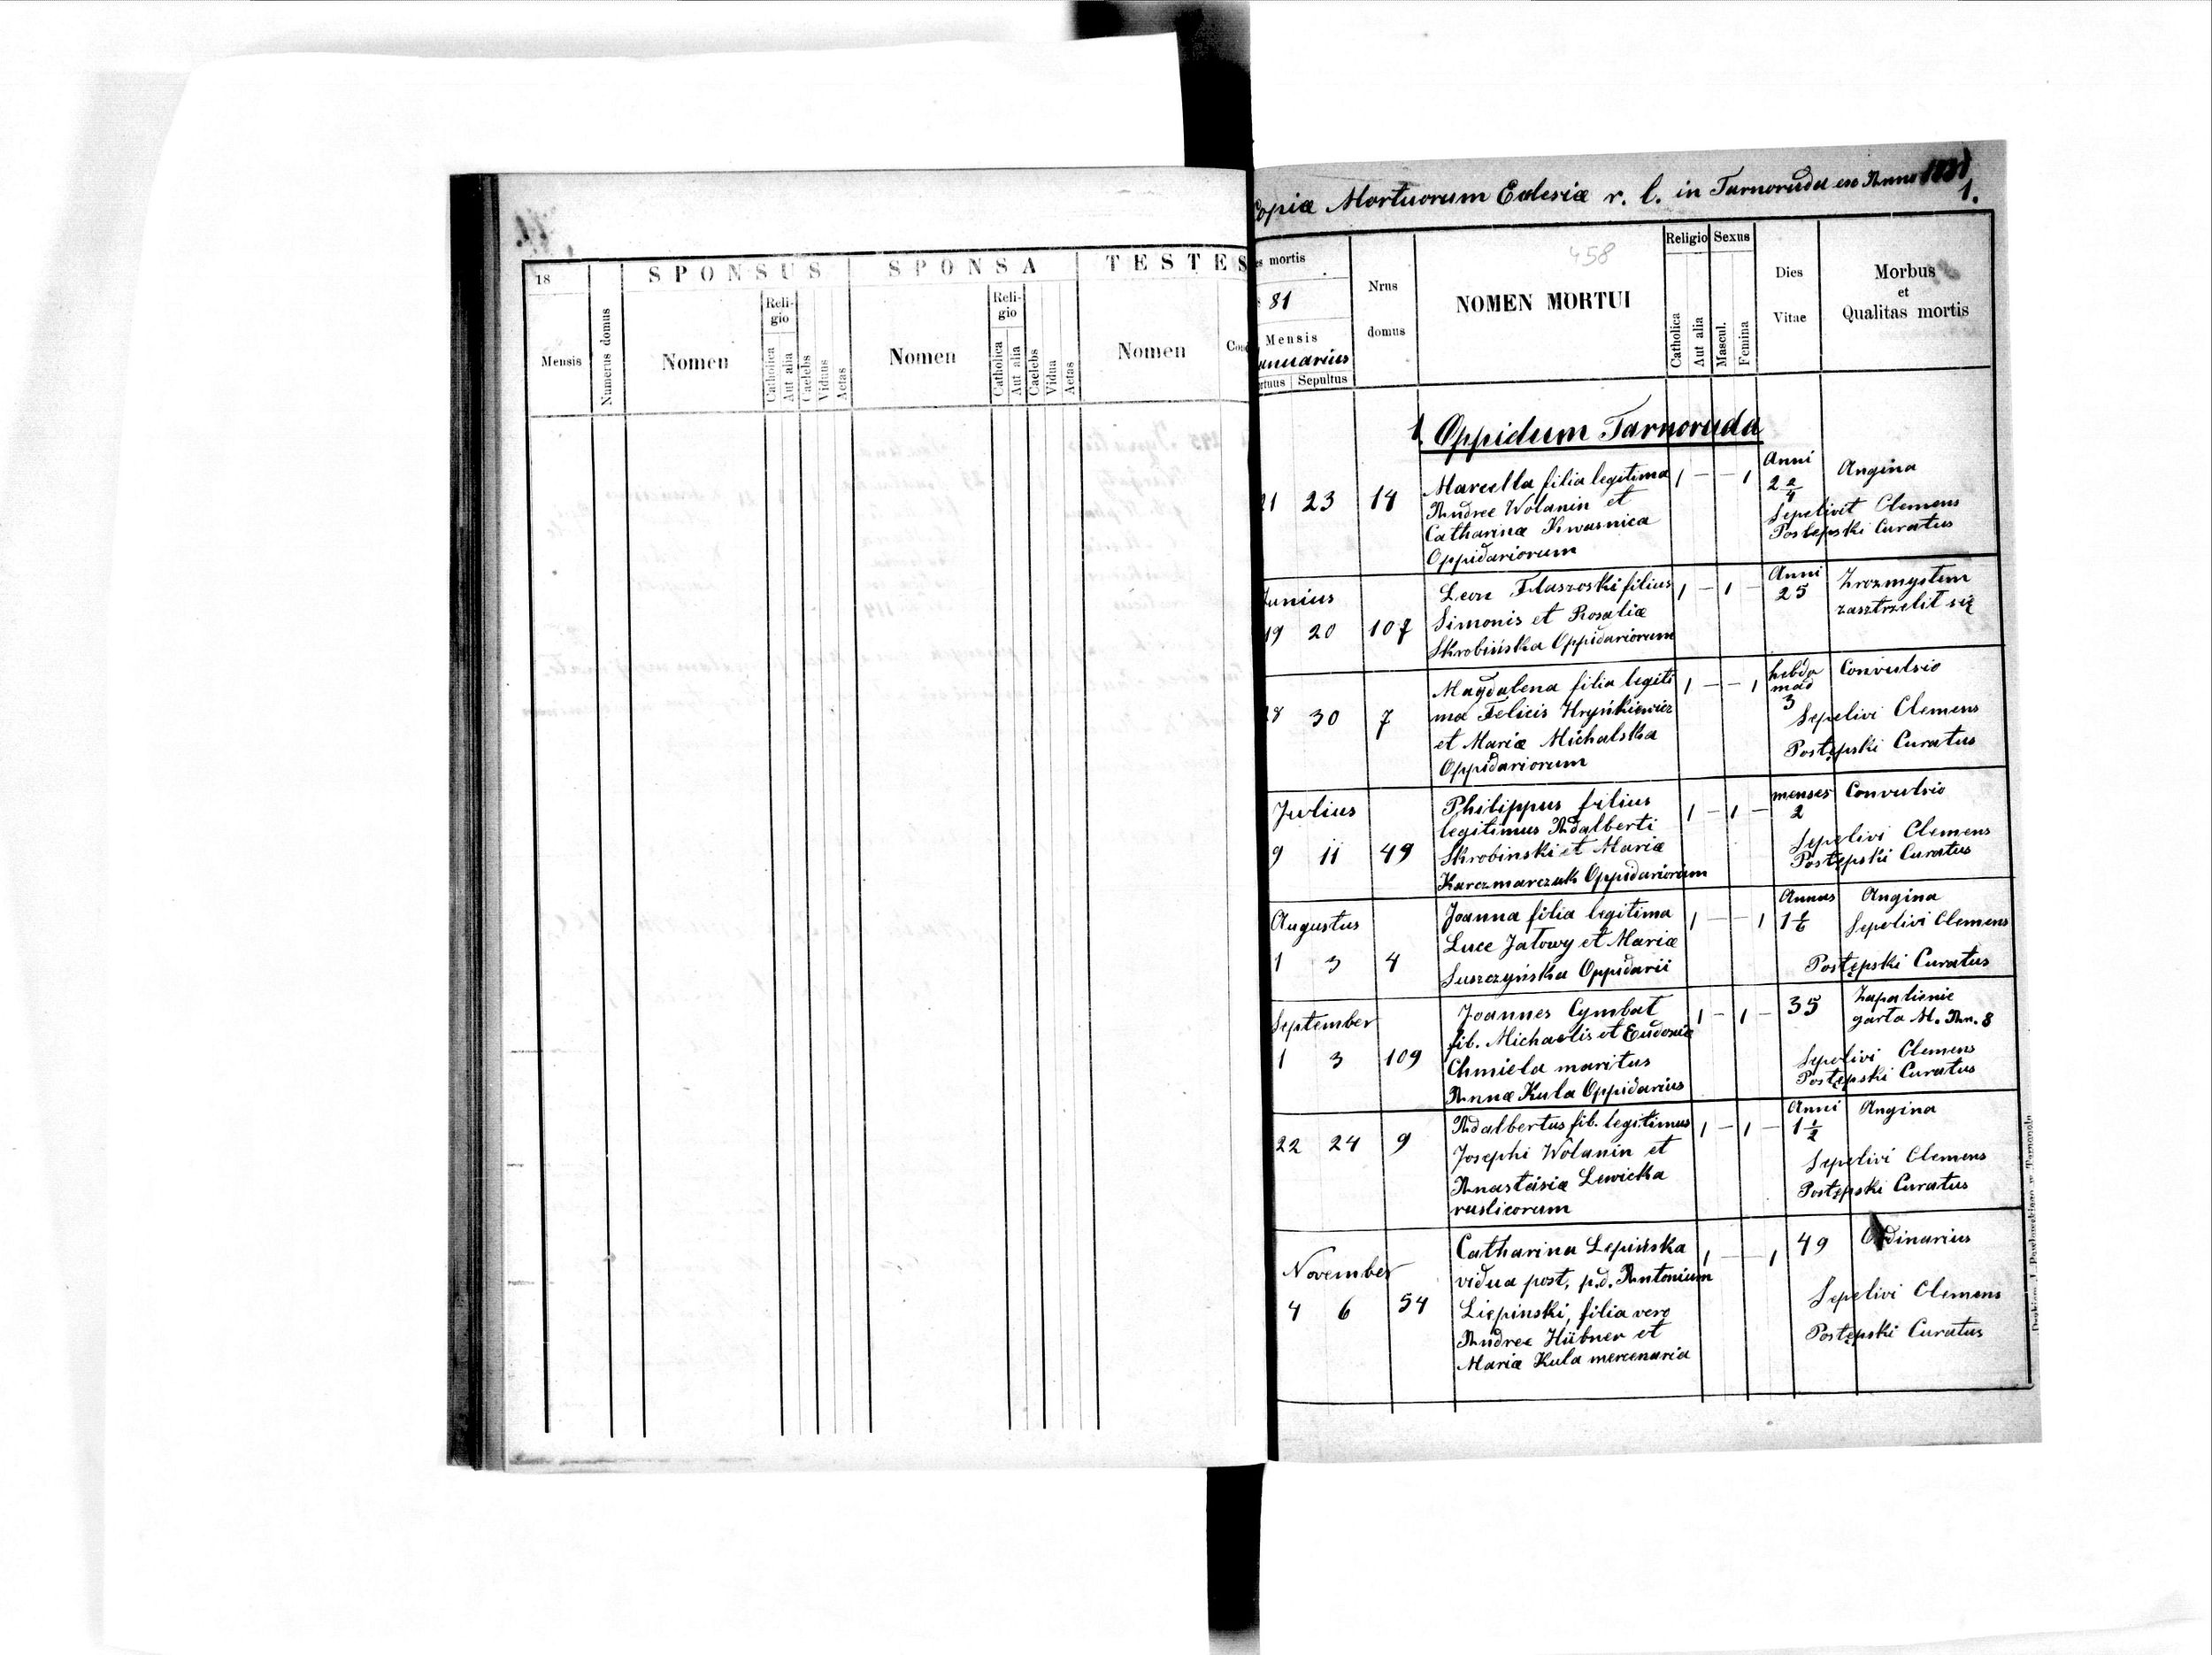 18
Mensis
Numerus domus
SPONSUS
Nomen
Reli-
gio
Catholica
Aut alia
Caelebs
Viduus
Aetas
SPONSA
Nomen
Reli-
gio
Catholica
Aut alia
Caelebs
Vidua
Aetas
TESTES
Nomen
Cond
Copiæ Mortuorum Eclesiæ r. l. in Tarnoruda ex Anno 1881
1.
es mortis
81
Mensis
anuarius
rtuus Sepultus
Nrus
domus
458
NOMEN MORTUI
Religio
Catholica
Aut alia
Sexus
Mascul.
Femina
Dies
Vitae
Morbus
et
Qualitas mortis
1. Oppidum Tarnoruda
21 23 14
Marcella filia legitima
Andree Wolanin et
Catharinæ Kwasnica
Oppidariorum
1 - - 1
Anni
2 2/4
Angina
Sepelivit Clemens
Postępski Curatus
Junius
19 20 107
Leon Flaszoski filius
Simonis et Rosaliæ
Skrobińska Oppidariorum
1 - 1 -
Anni
25
Zrozmystem
zasztrzelit się
28 30 7
Magdalena filia legiti
ma Felicis Hryńkiewicz
et Mariæ Michalska
Oppidariorum
1 - - 1
hebdo
mad
3
Convulsio
Sepelivi Clemens
Postępski Curatus
Julius
9 11 49
Philippus filius
legitimus Adalberti
Skrobinski et Mariæ
Karczmarczuk Oppidariorum
1 - 1 -
menses
2
Convulsio
Sepelivi Clemens
Postępski Curatus
Augustus
1 3 4
Joanna filia legitima
Luce Jatowy et Mariæ
Suszczyńska Oppidarii
1 - - 1
Annus
1 1/6
Angina
Sepelivi Clemens
Postępski Curatus
September
1 3 109
Joannes Cymbat
fil. Michaelis et Eudoxiæ
Chmiela maritus
Annæ Kula Oppidarius
1 - 1 -
35
Zapalienie
garta M. Nn. 8
Sepelivi Clemens
Postępski Curatus
22 24 9
Adalbertus fil. legitimus
Josephi Wolanin et
Anastasiæ Lewicka
rusticorum
1 - 1 -
Anni
1 1/2
Angina
Sepelivi Clemens
Postępski Curatus
November
4 6 54
Catharina Lepińska
vidua post. p.d. Antonium
Liepinski, filia vero
Andree Hübner et
Mariæ Kula mercenaria
1 - - 1
49
Ordinarius
Sepelivi Clemens
Postępski Curatus